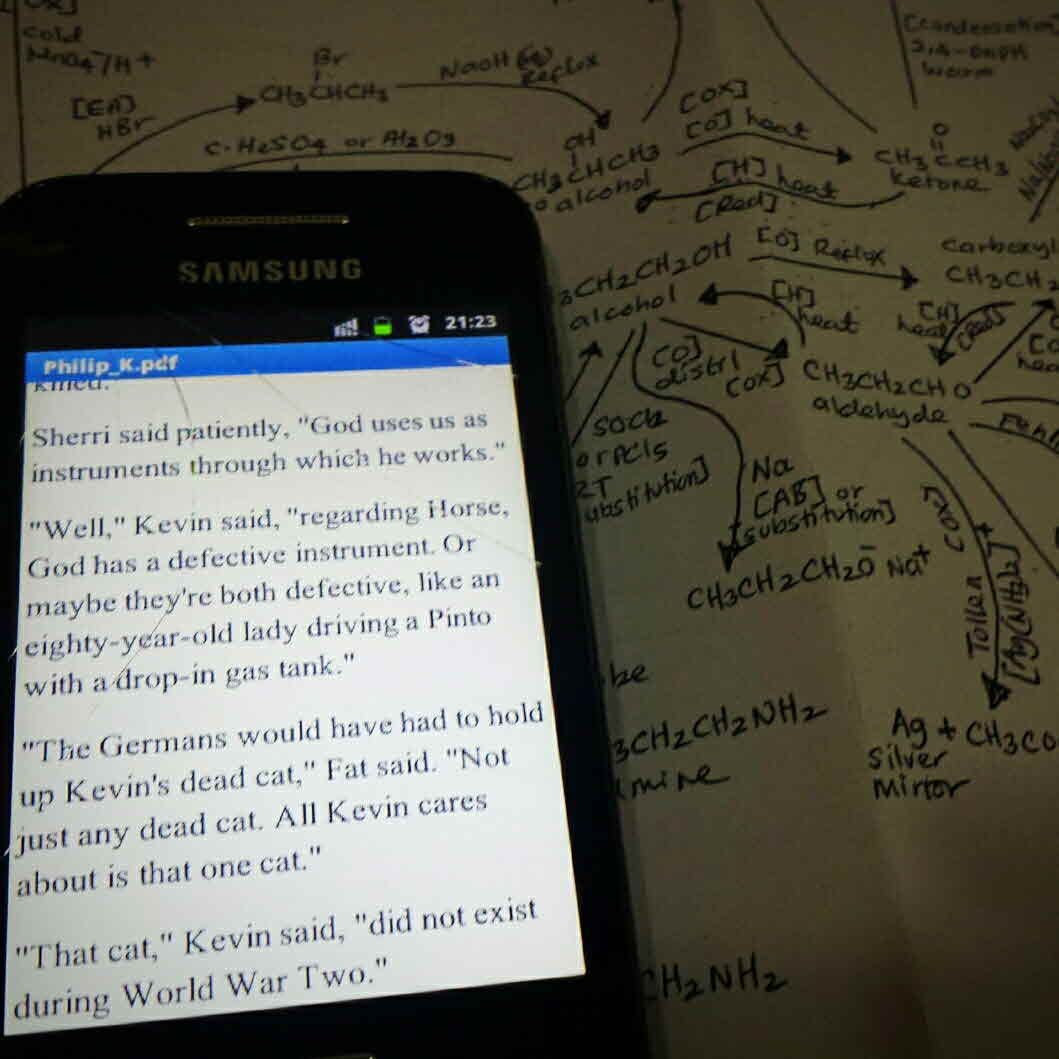 cold
MnO4⁻/H+
[EA]
HBr
Br
CH3CHCH3
NaOH
Reflux
[condensation]
2,4-DNPH
warm
C·H2SO4 or Al2O3
OH
CH3CHCH3
alcohol
[OX]
[O] heat
[H] heat
[Red]
O
CH3CCH3
ketone
SAMSUNG
21:23
Philip_K.pdf
killed.
Sherri said patiently, "God uses us as
instruments through which he works."
"Well," Kevin said, "regarding Horse,
God has a defective instrument. Or
maybe they're both defective, like an
eighty-year-old lady driving a Pinto
with a drop-in gas tank."
"The Germans would have had to hold
up Kevin's dead cat," Fat said. "Not
just any dead cat. All Kevin cares
about is that one cat."
"That cat," Kevin said, "did not exist
during World War Two."
3CH2CH2OH
alcohol
[O] Reflux
carboxyl
CH3CH2
[H]
heat
[H]
heat
[Red]
[O]
distil
[OX]
CH3CH2CHO
aldehyde
SOCl2
or PCl5
RT
substitution]
Na
[AB] or
substitution]
CH3CH2CH2O⁻ Na+
[OX]
Tollen
[Ag(NH3)2]+
Ag + CH3CO
Silver
Mirror
be
3CH2CH2NH2
mine
CH2NH2